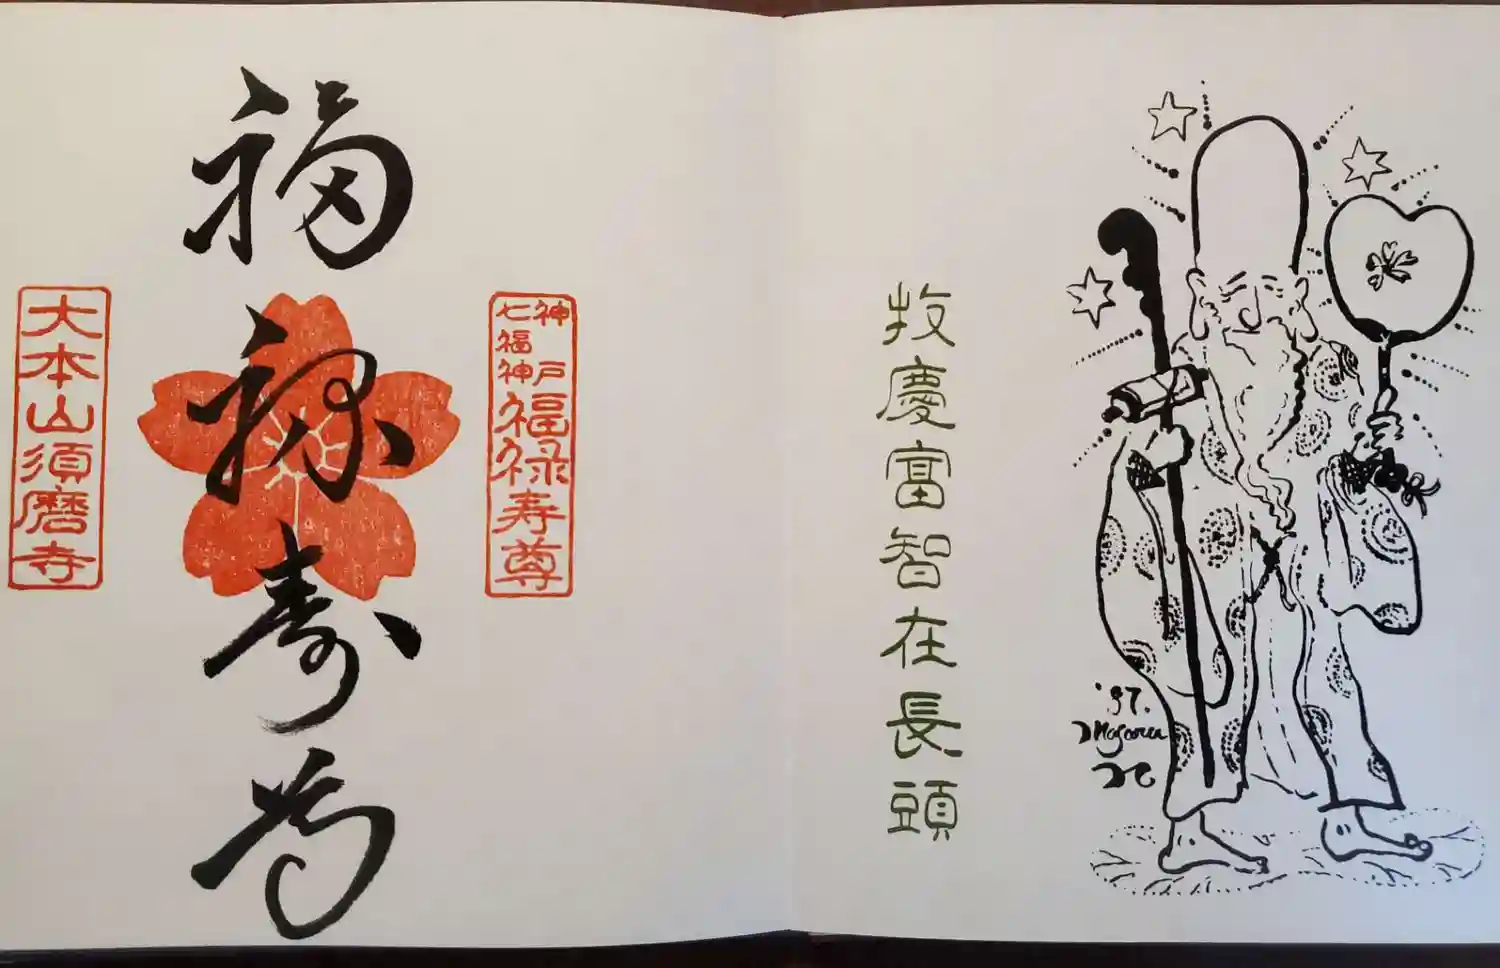 牧慶富智在長頭
神戸
七福神
福禄寿尊
福禄寿尊
大本山須磨寺
'97.